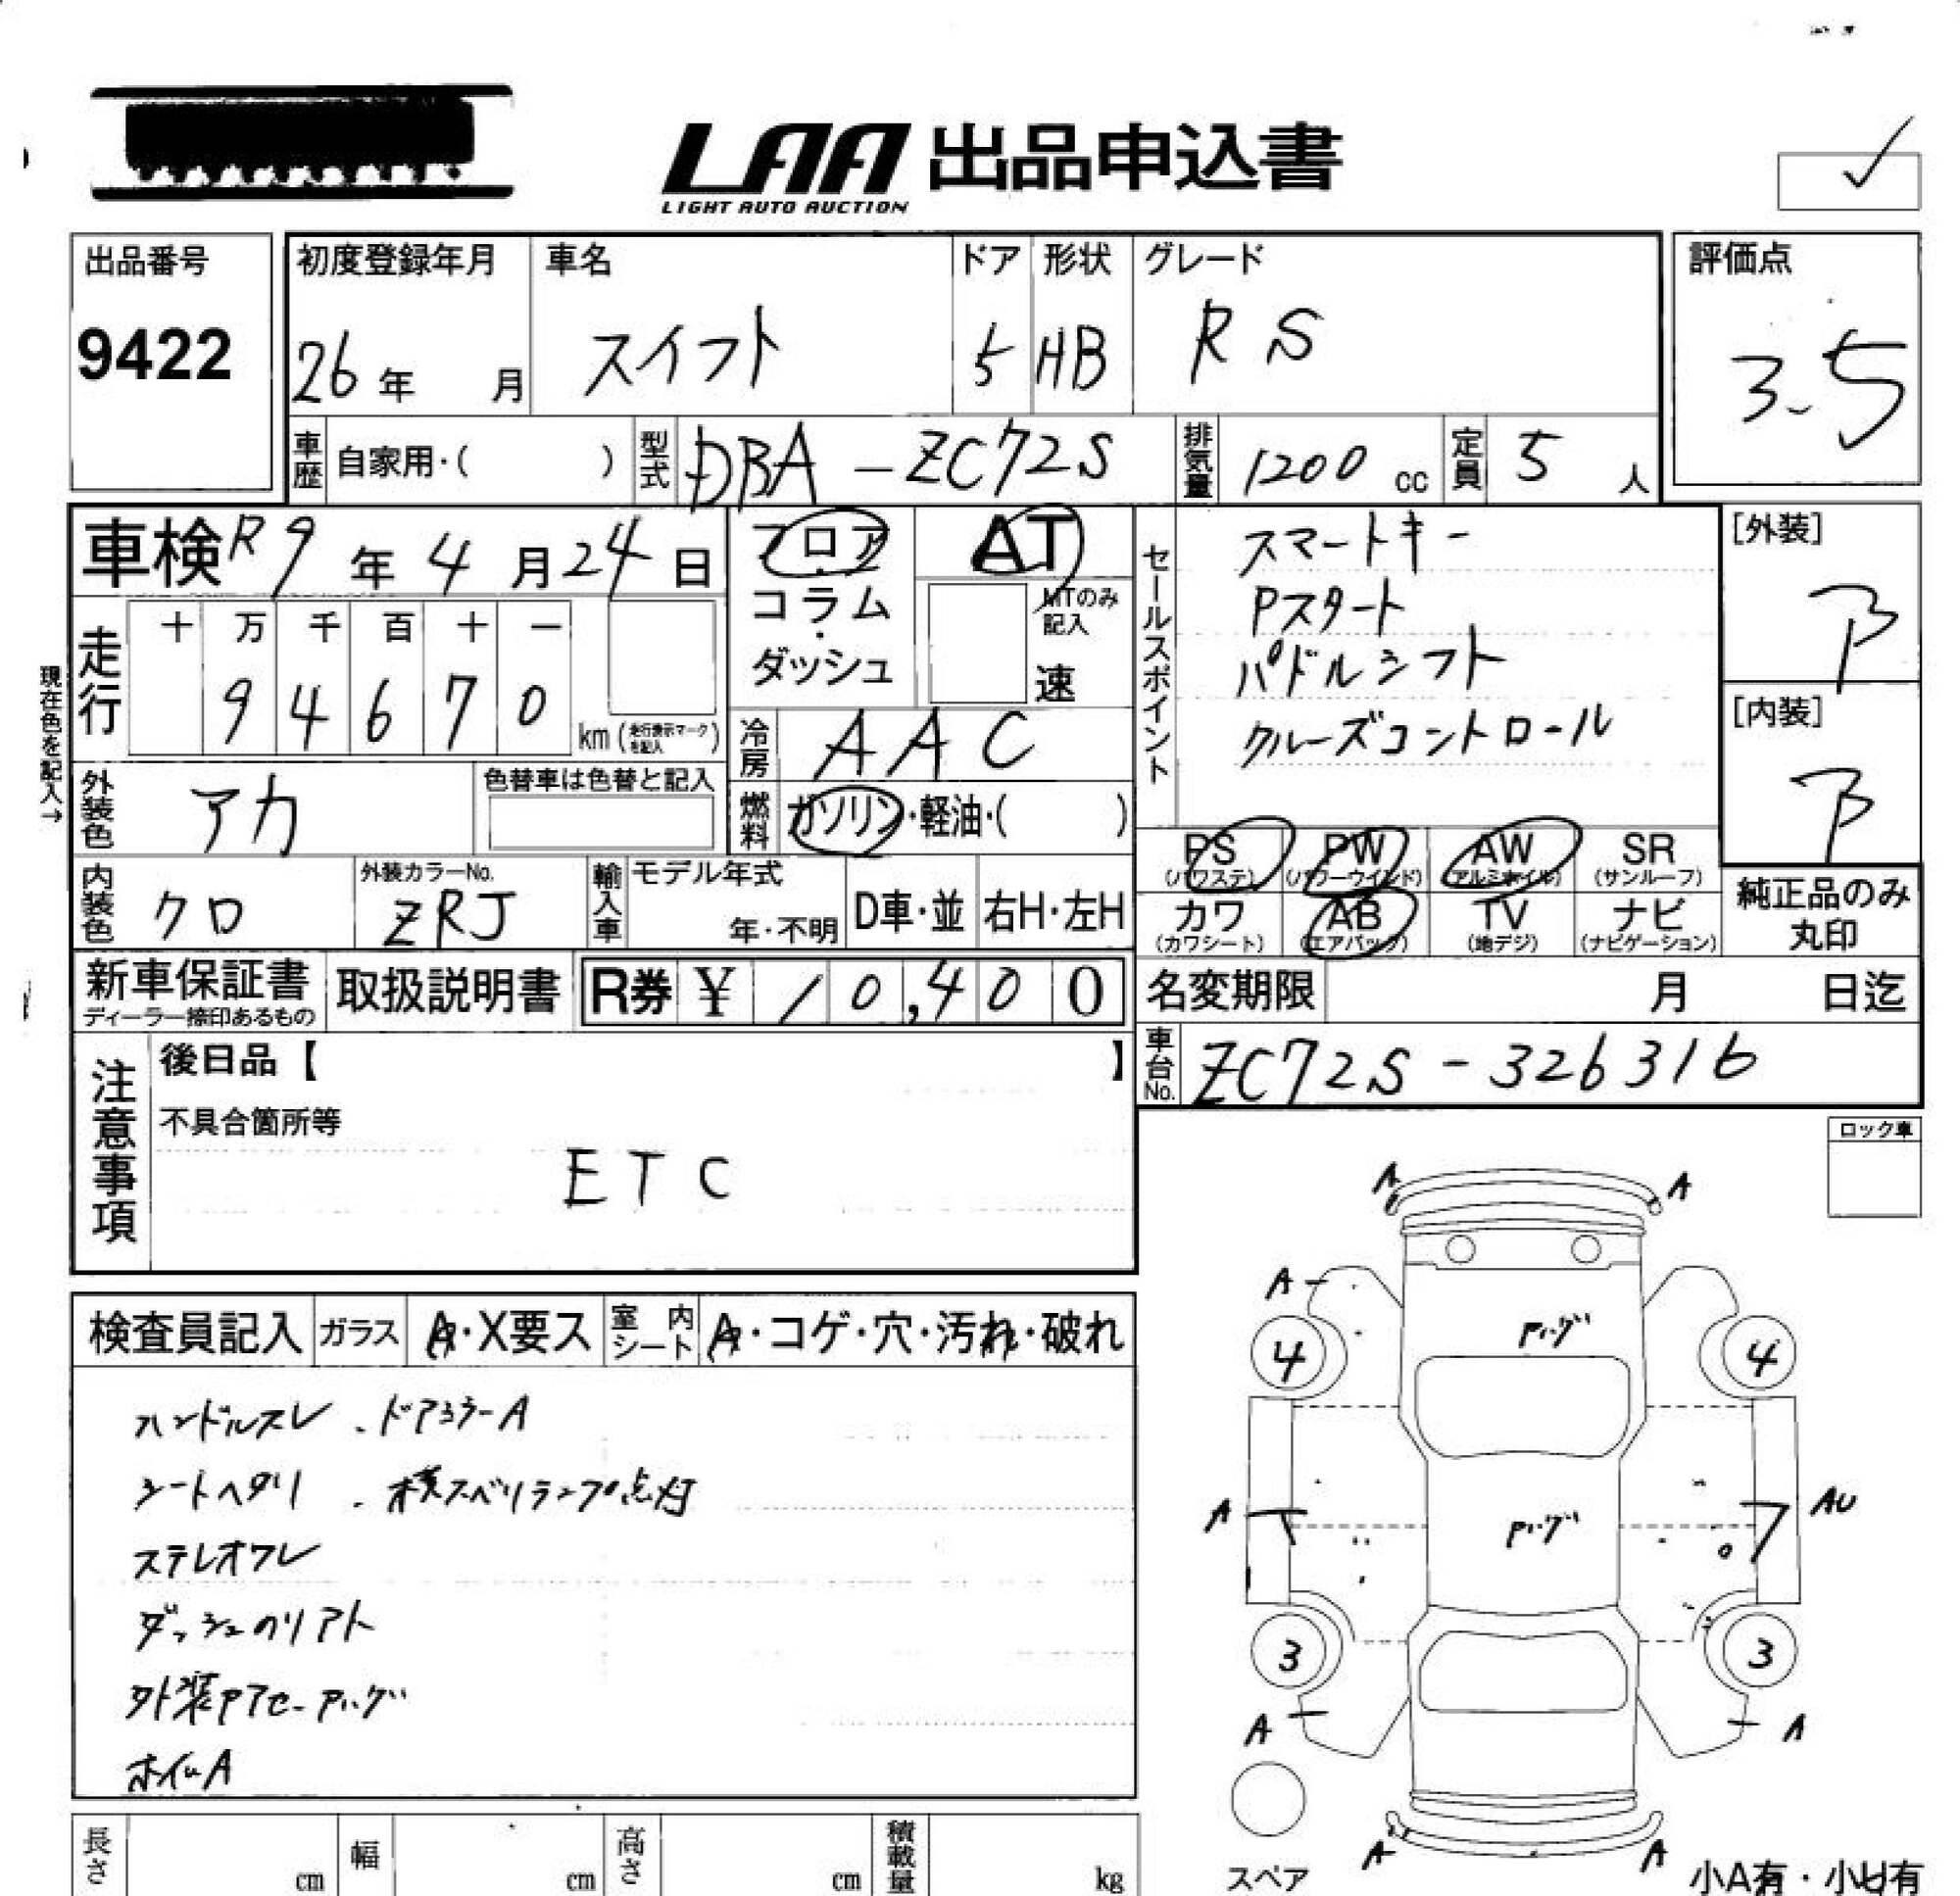 LAA 出品申込書
LIGHT AUTO AUCTION
出品番号
9422
初度登録年月
26年 月
車名
スイフト
ドア
5
形状
HB
グレード
RS
評価点
3.5
車歴 自家用・( )
型式 DBA-ZC72S
排気量 1200cc
定員 5人
車検R9年4月24日
フロア・コラム・ダッシュ
AT
MTのみ記入
速
セールスポイント
スマートキー
Pスタート
パドルシフト
クルーズコントロール
[外装]
[内装]
現在色を記入→
走行
十 万 千 百 十 一
9 4 6 7 0 km (走行表示マークを記入)
冷房 AAC
燃料 ガソリン・軽油・( )
外装色 アカ
色替車は色替と記入
内装色 クロ
外装カラーNo.
ZRJ
輸入車
モデル年式
年・不明
D車・並
右H・左H
PS
(パワステ)
PW
(パワーウインド)
AW
(アルミホイル)
SR
(サンルーフ)
カワ
(カワシート)
AB
(エアバック)
TV
(地デジ)
ナビ
(ナビゲーション)
純正品のみ
丸印
新車保証書
ディーラー捺印あるもの
取扱説明書
R券 ¥ 10,400
名変期限 月 日迄
車台No. ZC72S-326316
注意事項
後日品【 】
不具合箇所等
ETC
ロック車
検査員記入
ガラス A・X要ス
室内シート A・コゲ・穴・汚れ・破れ
ハンドルスレ . ドアミラーA
シートヘタリ . 横スベリランプ点灯
ステレオワレ
ダッシュノリアト
ホイルA
A A
A
4 4
A AU
3 3
A A
A A
スペア
小A有・小U有
長さ cm
幅 cm
高さ cm
積載量 kg